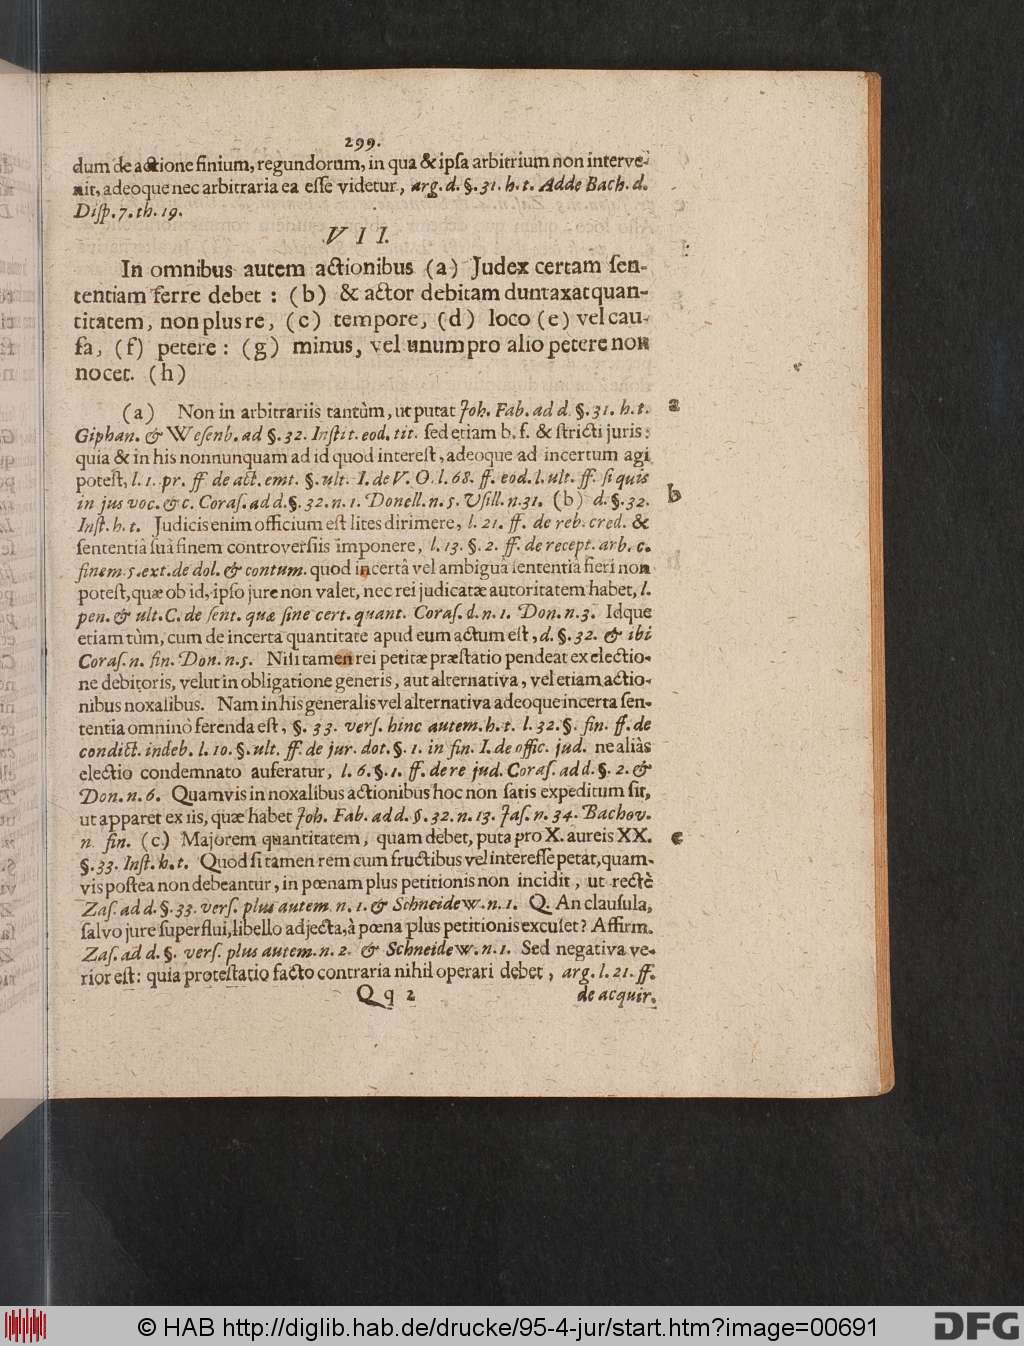 299.
dum de actione finium, regundorum, in qua & ipsa arbitrium non interve-
nit, adeoque nec arbitraria ea esse videtur, arg. d. §. 31. h. t. Adde Bach. d.
Disp. 7. th. 19.
VII.
In omnibus autem actionibus (a) Judex certam sen-
tentiam ferre debet : (b) & actor debitam duntaxat quan-
titatem, non plus re, (c) tempore, (d) loco (e) vel cau-
sa, (f) petere : (g) minus, vel unum pro alio petere non
nocet. (h)
(a) Non in arbitrariis tantùm, ut putat Joh. Fab. ad d. §. 31. h. t. a
Giphan. & Wesenb. ad §. 32. Instit. eod. tit. sed etiam b. f. & stricti juris:
quia & in his nonnunquam ad id quod interest, adeoque ad incertum agi
potest, l. 1. pr. ff de act. emt. §. ult. I. de V. O. l. 68. ff. eod. l. ult. ff. si quis
in jus voc. &c. Coras. ad d. §. 32. n. 1. Donell. n. 5. Usill. n. 31. (b) d. §. 32. b
Inst. h. t. Judicis enim officium est lites dirimere, l. 21. ff. de reb. cred. &
sententiâ suâ finem controversiis imponere, l. 13. §. 2. ff. de recept. arb. c.
finem 5. ext. de dol. & contum. quod incertâ vel ambiguâ sententiâ fieri non
potest, quæ ob id, ipso jure non valet, nec rei judicatæ autoritatem habet, l.
pen. & ult. C. de sent. quæ sine cert. quant. Coras. d. n. 1. Don. n. 3. Idque
etiam tùm, cum de incerta quantitate apud eum actum est, d. §. 32. & ibi
Coras. n. fin. Don. n. 5. Nisi tamen rei petitæ præstatio pendeat ex electio-
ne debitoris, velut in obligatione generis, aut alternativa, vel etiam actio-
nibus noxalibus. Nam in his generalis vel alternativa adeoque incerta sen-
tentia omninò ferenda est, §. 33. vers. hinc autem. h. t. l. 32. §. fin. ff. de
condict. indeb. l. 10. §. ult. ff. de jur. dot. §. 1. in fin. I. de offic. jud. ne aliàs
electio condemnato auferatur, l. 6. §. 1. ff. de re jud. Coras. ad d. §. 2. &
Don. n. 6. Quamvis in noxalibus actionibus hoc non satis expeditum sit,
ut apparet ex iis, quæ habet Joh. Fab. ad d. §. 32. n. 13. Jas. n. 34. Bachov.
n. fin. (c) Majorem quantitatem, quam debet, puta pro X. aureis XX. c
§. 33. Inst. h. t. Quod si tamen rem cum fructibus vel interesse petat, quam-
vis postea non debeantur, in pœnam plus petitionis non incidit, ut rectè
Zas. ad d. §. 33. vers. plus autem. n. 1. & Schneidew. n. 1. Q. An clausula,
salvo jure superflui, libello adjecta, à pœna plus petitionis excuset? Affirm.
Zas. ad d. §. vers. plus autem. n. 2. & Schneidew. n. 1. Sed negativa ve-
rior est: quia protestatio facto contraria nihil operari debet, arg. l. 21. ff.
Qq 2 de acquir.
© HAB http://diglib.hab.de/drucke/95-4-jur/start.htm?image=00691
DFG